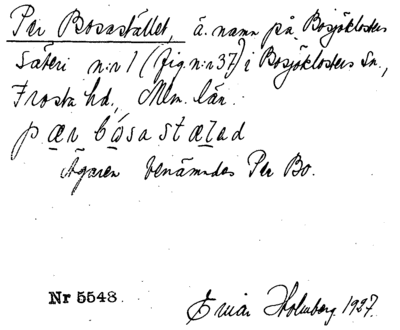 Per Bosastället, ä. namn på Bosjöklosters
säteri n:r 1 (fig. n:r 37) i Bosjöklosters Sn.,
Frosta hd., Mlm. län.
pær bósastæład
Ägaren benämndes Per Bo.
Nr 5548.
Einar Holmberg 1927.